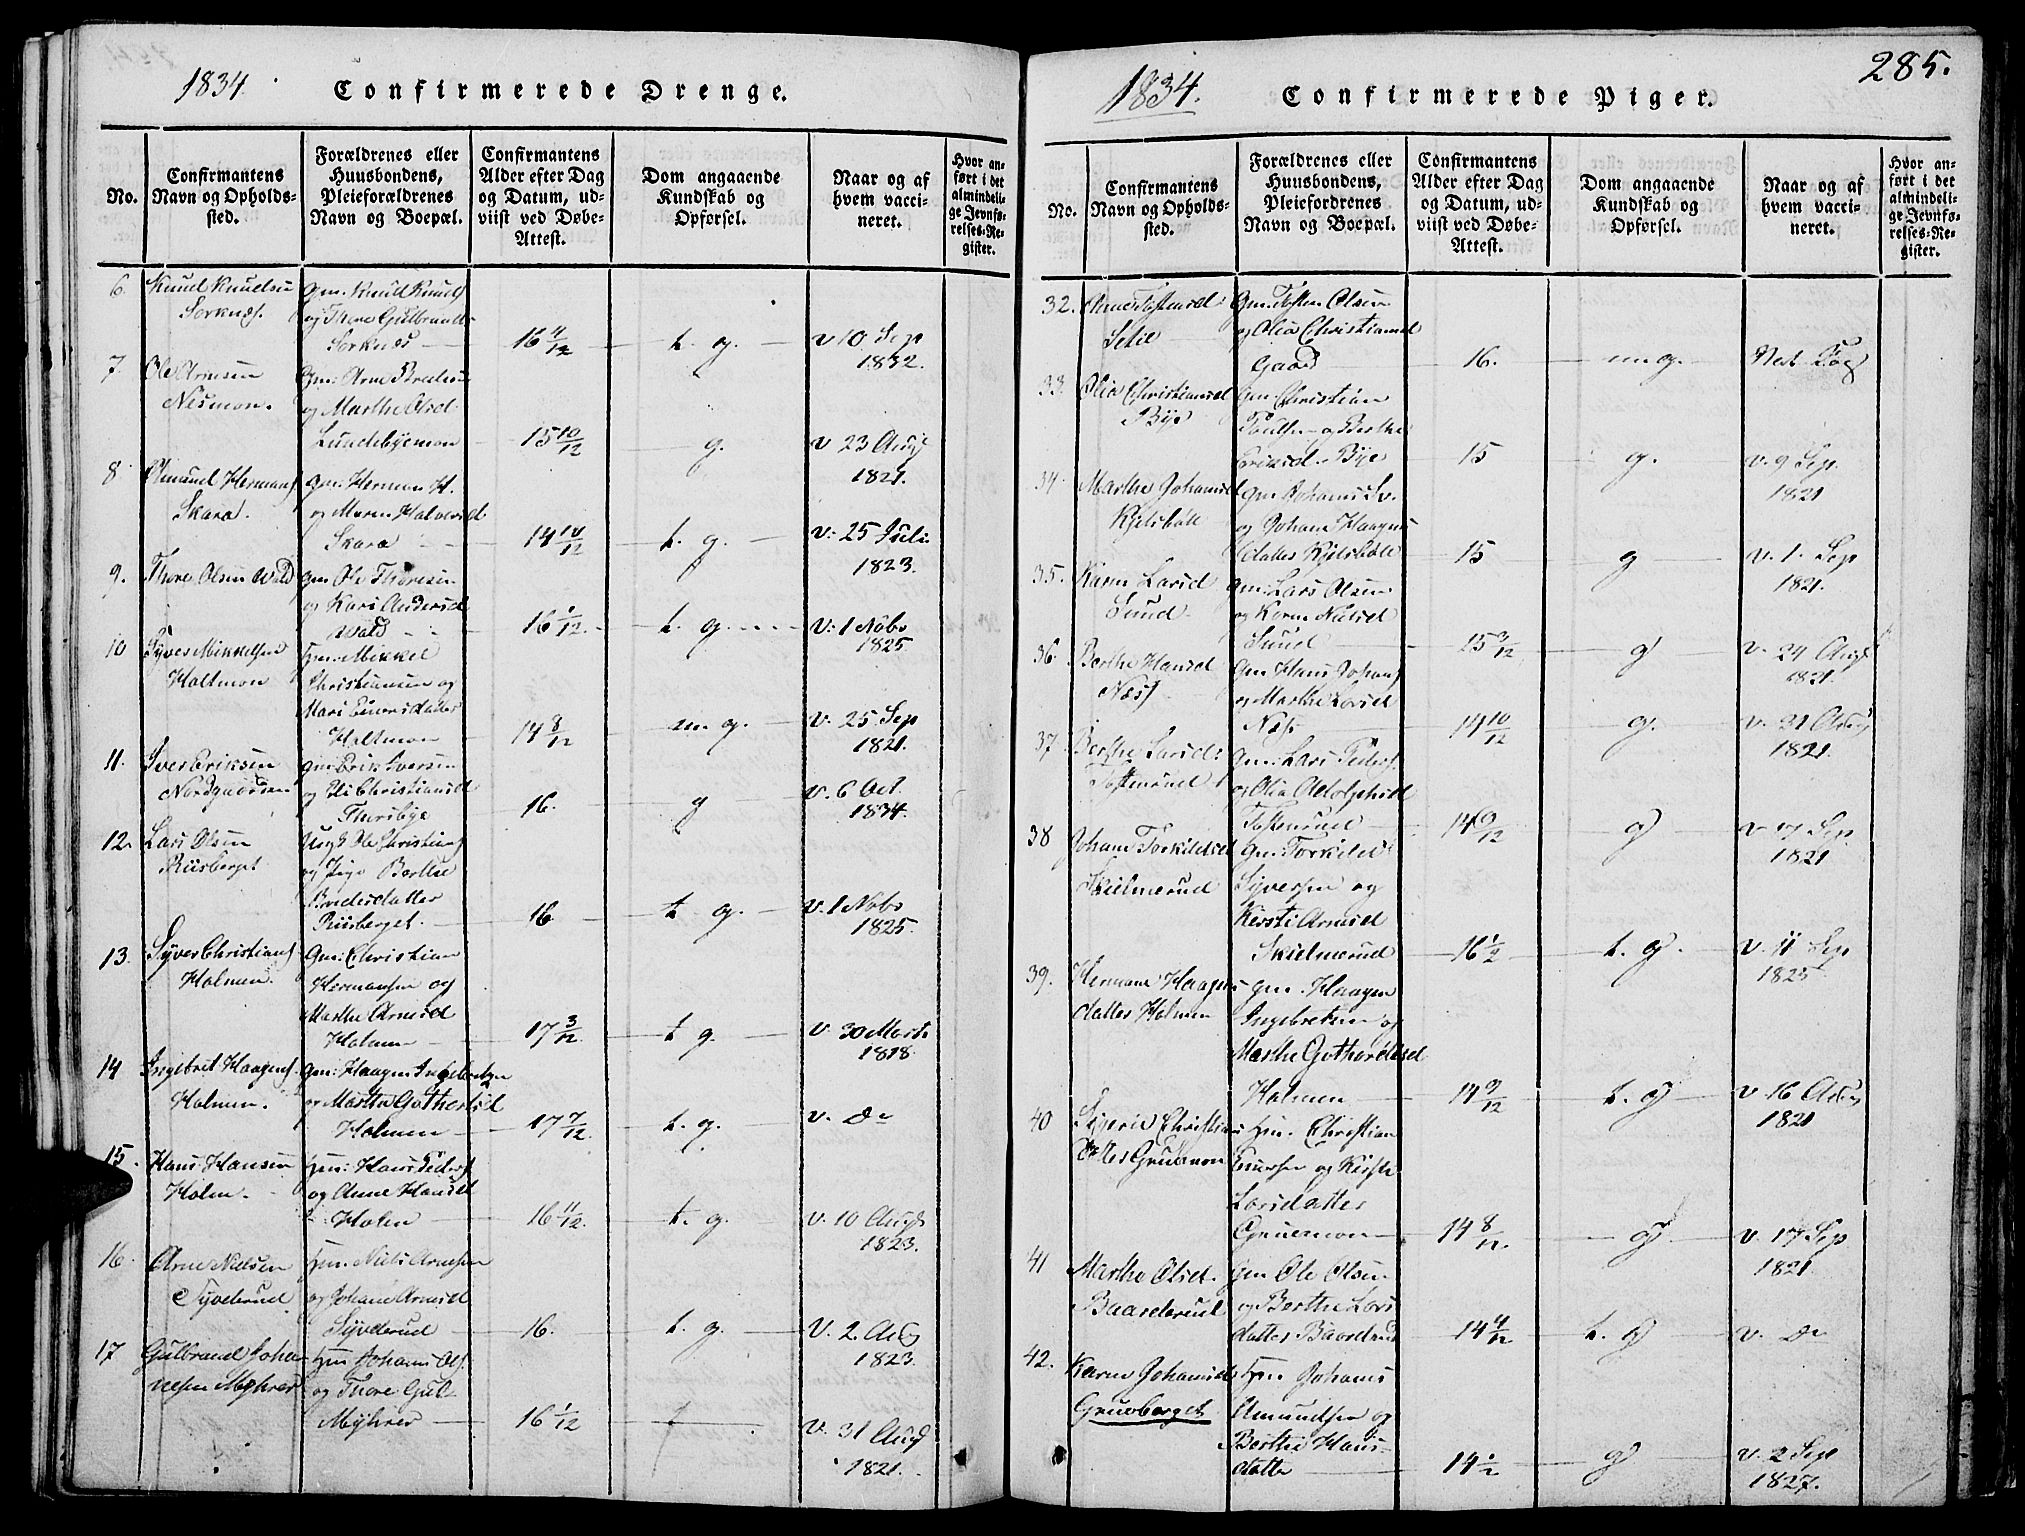 1834.
Confirmerede Drenge.
No.
Confirmantens Navn og Opholds-sted.
Forældrenes eller Huusbondens, Pleieforældrenes Navn og Boepæl.
Confirmantens Alder efter Dag og Datum, ud-viist ved Døbe-Attest.
Dom angaaende Kundskab og Opførsel.
Naar og af hvem vacci-neret.
Hvor an-ført i det almindeli-ge Jevnfø-relses-Re-gister.
6. Knud Knudsen
Sorknæs.
Gm. Knud Knuds
og Thore Gulbrands
Sorknæs
16 4/12
t. g.
v 10 Sep
1832.
7 Ole Arnesen
Nesmon.
Gm: Arne
og Marthe Olsd
Lundebyemon
15 10/12
g.
v. 23 Aug
1821.
8 Amund Hermans
Skara.
Gm: Herman H.
og Maren Halvorsd
Skara
14 10/12
t. g.
v: 25 Juli
1823.
9. Thore Olsen Wald
gm Ole Thoresen
og Kari Andersd
Wald
16 1/12.
t. g.
V: 1 Nobr
1825.
10 Syver Mikkelsen
Holtmon
Hm: Mikkel
Christiansen og
Mari Einersdatter
Holtmon
14 8/12
m g.
V: 25 Sep
1821.
11. Iver Eriksen
gm: Erik Iversen
og Christiansd
Thorsbye
16.
g
v. 6 Oct.
1834.
12. Lars Olsen
Riisberget
Ungk Ole Christians
og Pige Berthe
datter
Riisberget.
16
t g.
v. 1 Nobr
1825.
13. Syver Christians
Holmen.
Gm: Christian
Hermansen og
Marthe Arnesd
Holmen
17 3/12
t g.
V. 30 Marts
1818.
14 Ingebret Haagens
Holmen.
gm: Haagen Ingebretsen
og Marthe
Holmen
17 7/12
t. g.
v. Do
15. Hans Hansen
Holen.
Hm: Hans Peders
og Anne Hansd
Holen
16 11/12.
t. g.
V. 10 Aug
1823.
16. Arne Nielsen
Syverud
Hm. Niels Arnesen
og Johane Arnesd
Syverud
16.
t. g.
V. 2 Aug
1823.
17 Gulbrand Johan
nesen Myhrer
Hm Johans Ols.
og Thore Gul
Myhrer
16 1/12
V. 31 Aug
1821.
285.
1834.
Confirmerede Piger.
No.
Confirmantens Navn og Opholds-sted.
Forældrenes eller Huusbondens, Pleiefordrenes Navn og Boepæl.
Confirmantens Alder efter Dag og Datum, ud-viist ved Døbe-Attest.
Dom angaaende Kundskab og Opførsel.
Naar og af hvem vacci-neret.
Hvor an-ført i det almindeli-ge Jevnfø-relses-Re-gister.
32. Anne Tostensd
Gm. Tosten Olsen
og Olia Christiansd
Gaard
16.
m g.
33. Olia Christiansd
Bye
Gm. Christian
og Berthe
Eriksd. Bye
15
g.
v. 9 Sep.
1821
34. Marthe Johansd
Kjelsbøle
gm Johans
og Johane Haagens
datter Kjelsbøle
15
g
V. 1. Sep
1821.
35. Karen Larsd
Sund.
gm: Lars Olsen
og Karen Nielsd
Sund
15 3/12
g
V. 24 Aug
1821.
36. Berthe Hansd
Næss
Gm Hans Johans
og Marthe Larsd
Næs
14 10/12
g.
V. 21 Aug
1821.
37. Berthe Larsd:
Tostenrud
gm: Lars Peders.
og Olia Adolphsd
Tostenrud
14 9/12
g
V 17 Sep.
1821
38 Johane Torkildsd
Skielmerud
Gm: Torkild
Syversen og
Kersti Arnesd
Skielmerud
16 1/2
t. g.
V. 11 Sep
1825
39. Hermane Haagens
datter Holmen
gm. Haagen
Ingebretsen og
Marthe Gothardsd
Holmen
14 9/12
t. g
V. 16 Aug
1821
40 Sigerie Christians
dtter Gruemon
Hm. Christian
Einersen og Kersti
Larsdatter
Gruemon
14 8/12.
g
V. 17 Sep
1821.
41 Marthe Olsd.
Baarderud
gm Ole Olsen
og Berthe Lars
datter Baarderud
14 4/12
t. g
V. Do
42. Karen Johansd
Grueberget
Hm Johans
Amundsen og
Berthe Hans-
datter
14 1/2
g
V. 2 Sep
1827.